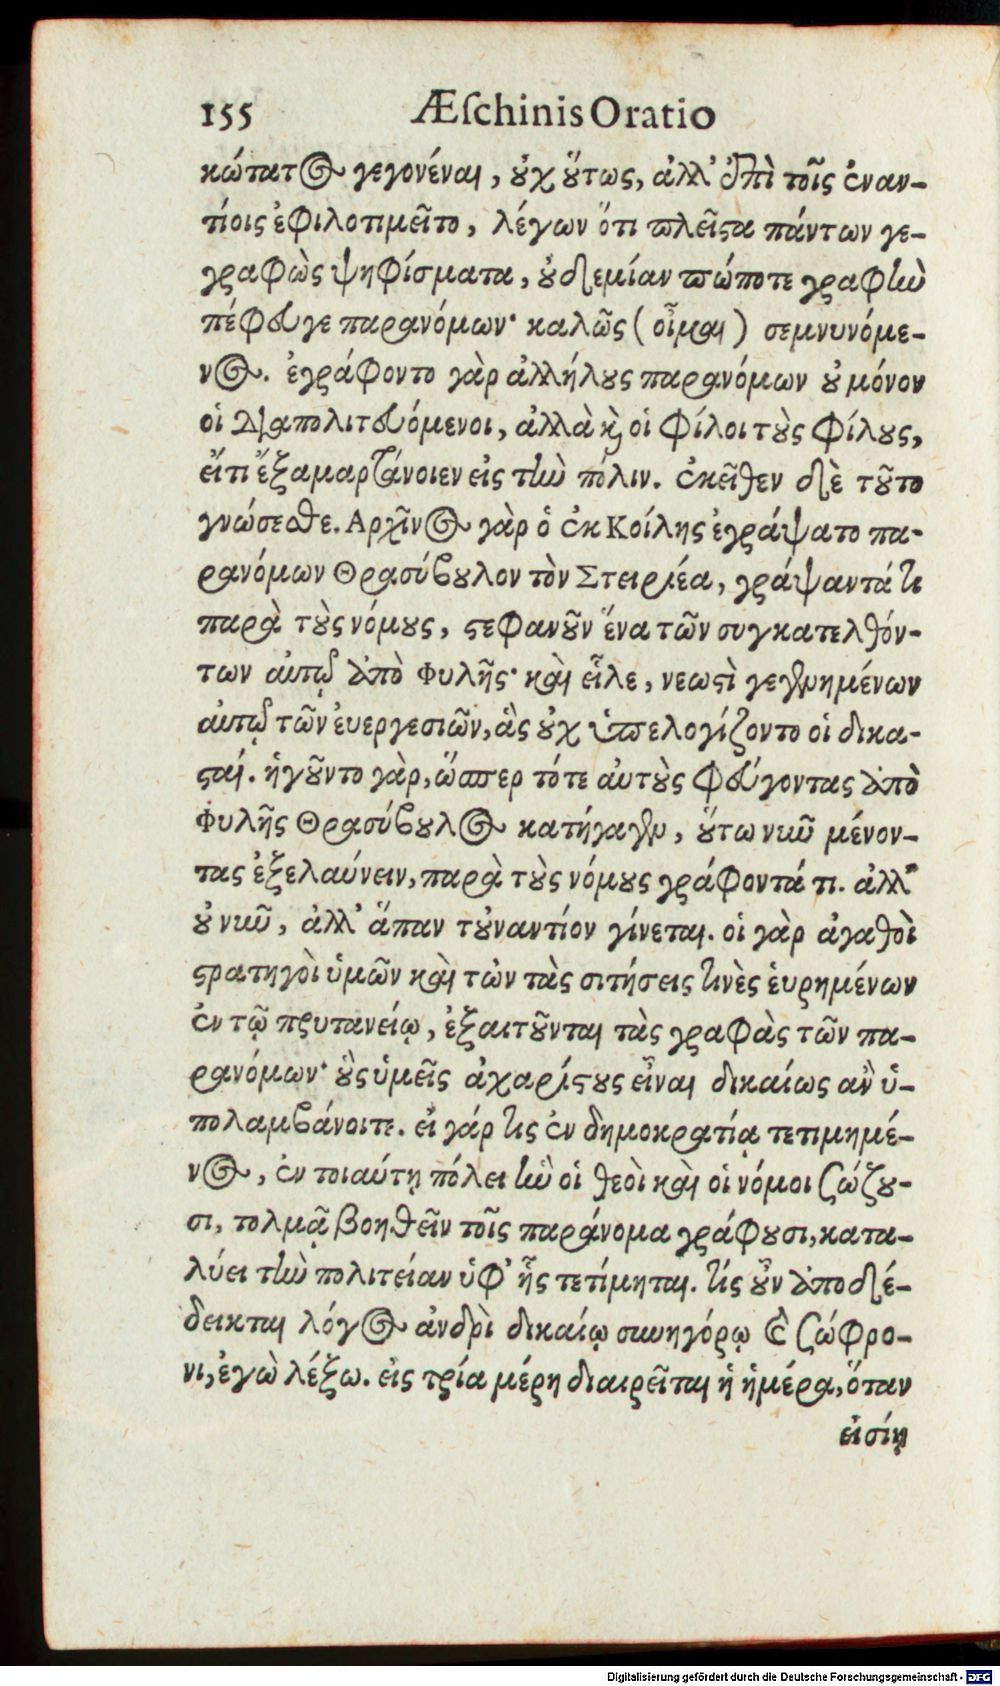 155 Æſchinis Oratio
κώτατος γεγονέναι, οὐχ οὕτως, ἀλλ' ἐπὶ τοῖς ἐναν-
τίοις ἐφιλοτιμεῖτο, λέγων ὅτι πλεῖστα πάντων γε-
γραφὼς ψηφίσματα, οὐδεμίαν πώποτε γραφὴν
πέφευγε παρανόμων· καλῶς (οἶμαι) σεμνυνόμε-
νος. ἐγράφοντο γὰρ ἀλλήλους παρανόμων οὐ μόνον
οἱ διαπολιτευόμενοι, ἀλλὰ καὶ οἱ φίλοι τοὺς φίλους,
εἴτι ἐξαμαρτάνοιεν εἰς τὴν πόλιν. ἐκεῖθεν δὲ τοῦτο
γνώσεσθε. Αρχῖνος γὰρ ὁ ἐκ Κοίλης ἐγράψατο πα-
ρανόμων Θρασύβουλον τὸν Στειριέα, γράψαντά τι
παρὰ τοὺς νόμους, στεφανοῦν ἕνα τῶν συγκατελθόν-
των αὐτῷ ἀπὸ Φυλῆς· καὶ εἷλε, νεωστὶ γεγενημένων
αὐτῷ τῶν ἐυεργεσιῶν, ἃς οὐχ ὑπελογίζοντο οἱ δικα-
σταί. ἡγοῦντο γὰρ, ὥσπερ τότε αὐτοὺς φεύγοντας ἀπὸ
Φυλῆς Θρασύβουλος κατήγαγεν, οὕτω νῦν μένον-
τας ἐξελαύνειν, παρὰ τοὺς νόμους γράφοντά τι. ἀλλ'
οὐ νῦν, ἀλλ' ἅπαν τοὐναντίον γίνεται. οἱ γὰρ ἀγαθοὶ
στρατηγοὶ ὑμῶν καὶ τῶν τὰς σιτήσεις τινὲς ἑυρημένων
ἐν τῷ πρυτανείῳ, ἐξαιτοῦνται τὰς γραφὰς τῶν πα-
ρανόμων· οὓς ὑμεῖς ἀχαρίστους εἶναι δικαίως ἂν ὑ-
πολαμβάνοιτε. εἰ γάρ τις ἐν δημοκρατίᾳ τετιμημέ-
νος, ἐν τοιαύτῃ πόλει ἣν οἱ θεοὶ καὶ οἱ νόμοι ζώζου-
σι, τολμᾷ βοηθεῖν τοῖς παράνομα γράφουσι, κατα-
λύει τὴν πολιτείαν ὑφ' ἧς τετίμηται. τίς οὖν ἀποδέ-
δεικται λόγος ἀνδρὶ δικαίῳ συνηγόρῳ καὶ ζώφρο-
νι, ἐγὼ λέξω. εἰς τρία μέρη διαιρεῖται ἡ ἡμέρα, ὅταν
εἰσίῃ
Digitalisierung gefördert durch die Deutsche Forschungsgemeinschaft - DFG